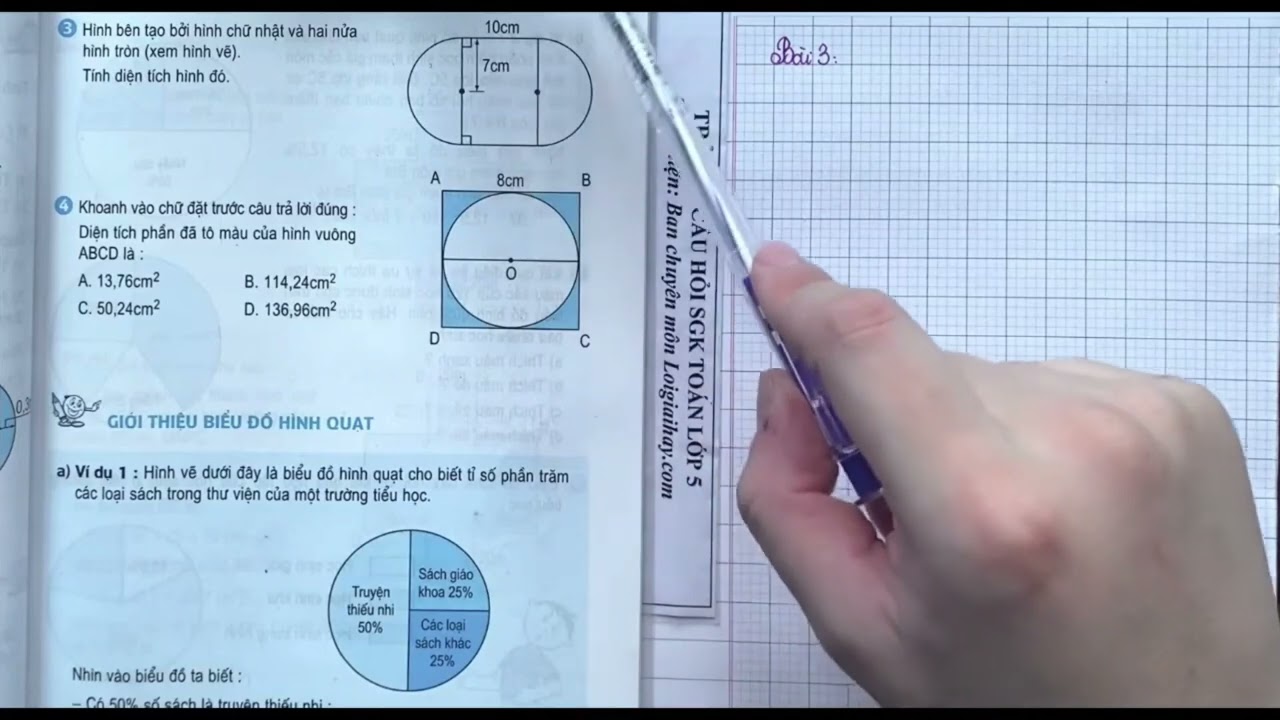 3 Hình bên tạo bởi hình chữ nhật và hai nửa
hình tròn (xem hình vẽ).
Tính diện tích hình đó.
10cm
7cm
4 Khoanh vào chữ đặt trước câu trả lời đúng :
Diện tích phần đã tô màu của hình vuông
ABCD là :
A. 13,76cm² B. 114,24cm²
C. 50,24cm² D. 136,96cm²
A 8cm B
O
D C
GIỚI THIỆU BIỂU ĐỒ HÌNH QUẠT
a) Ví dụ 1 : Hình vẽ dưới đây là biểu đồ hình quạt cho biết tỉ số phần trăm
các loại sách trong thư viện của một trường tiểu học.
Truyện
thiếu nhi
50%
Sách giáo
khoa 25%
Các loại
sách khác
25%
Nhìn vào biểu đồ ta biết :
– Có 50% số sách là truyện thiếu nhi ;
CÂU HỎI SGK TOÁN LỚP 5
Ban chuyên môn Loigiaihay.com
Bài 3: